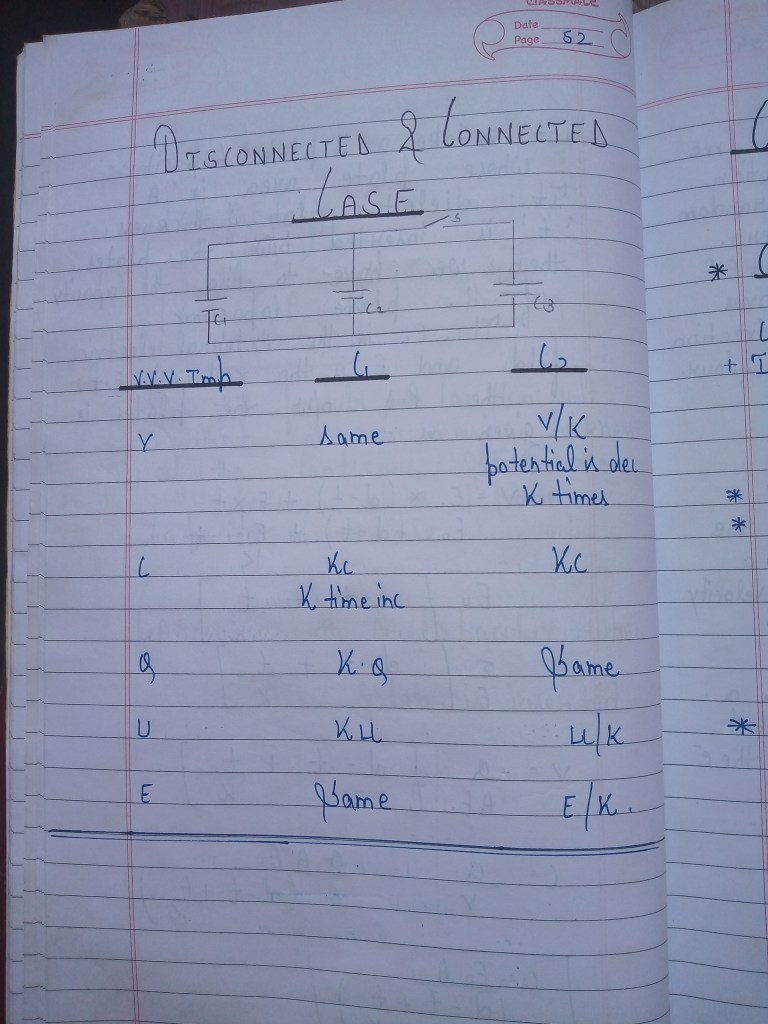 CLASSMATE
Date
Page 52
DISCONNECTED & CONNECTED
CASE
S
C1 C2 C3
V.V.V. Imp C1 C2
V same V/K
potential is dec
K times
C KC KC
K time inc
Q K.Q Same
U KU U/K
E Same E/K.
*
+ I
*
*
*